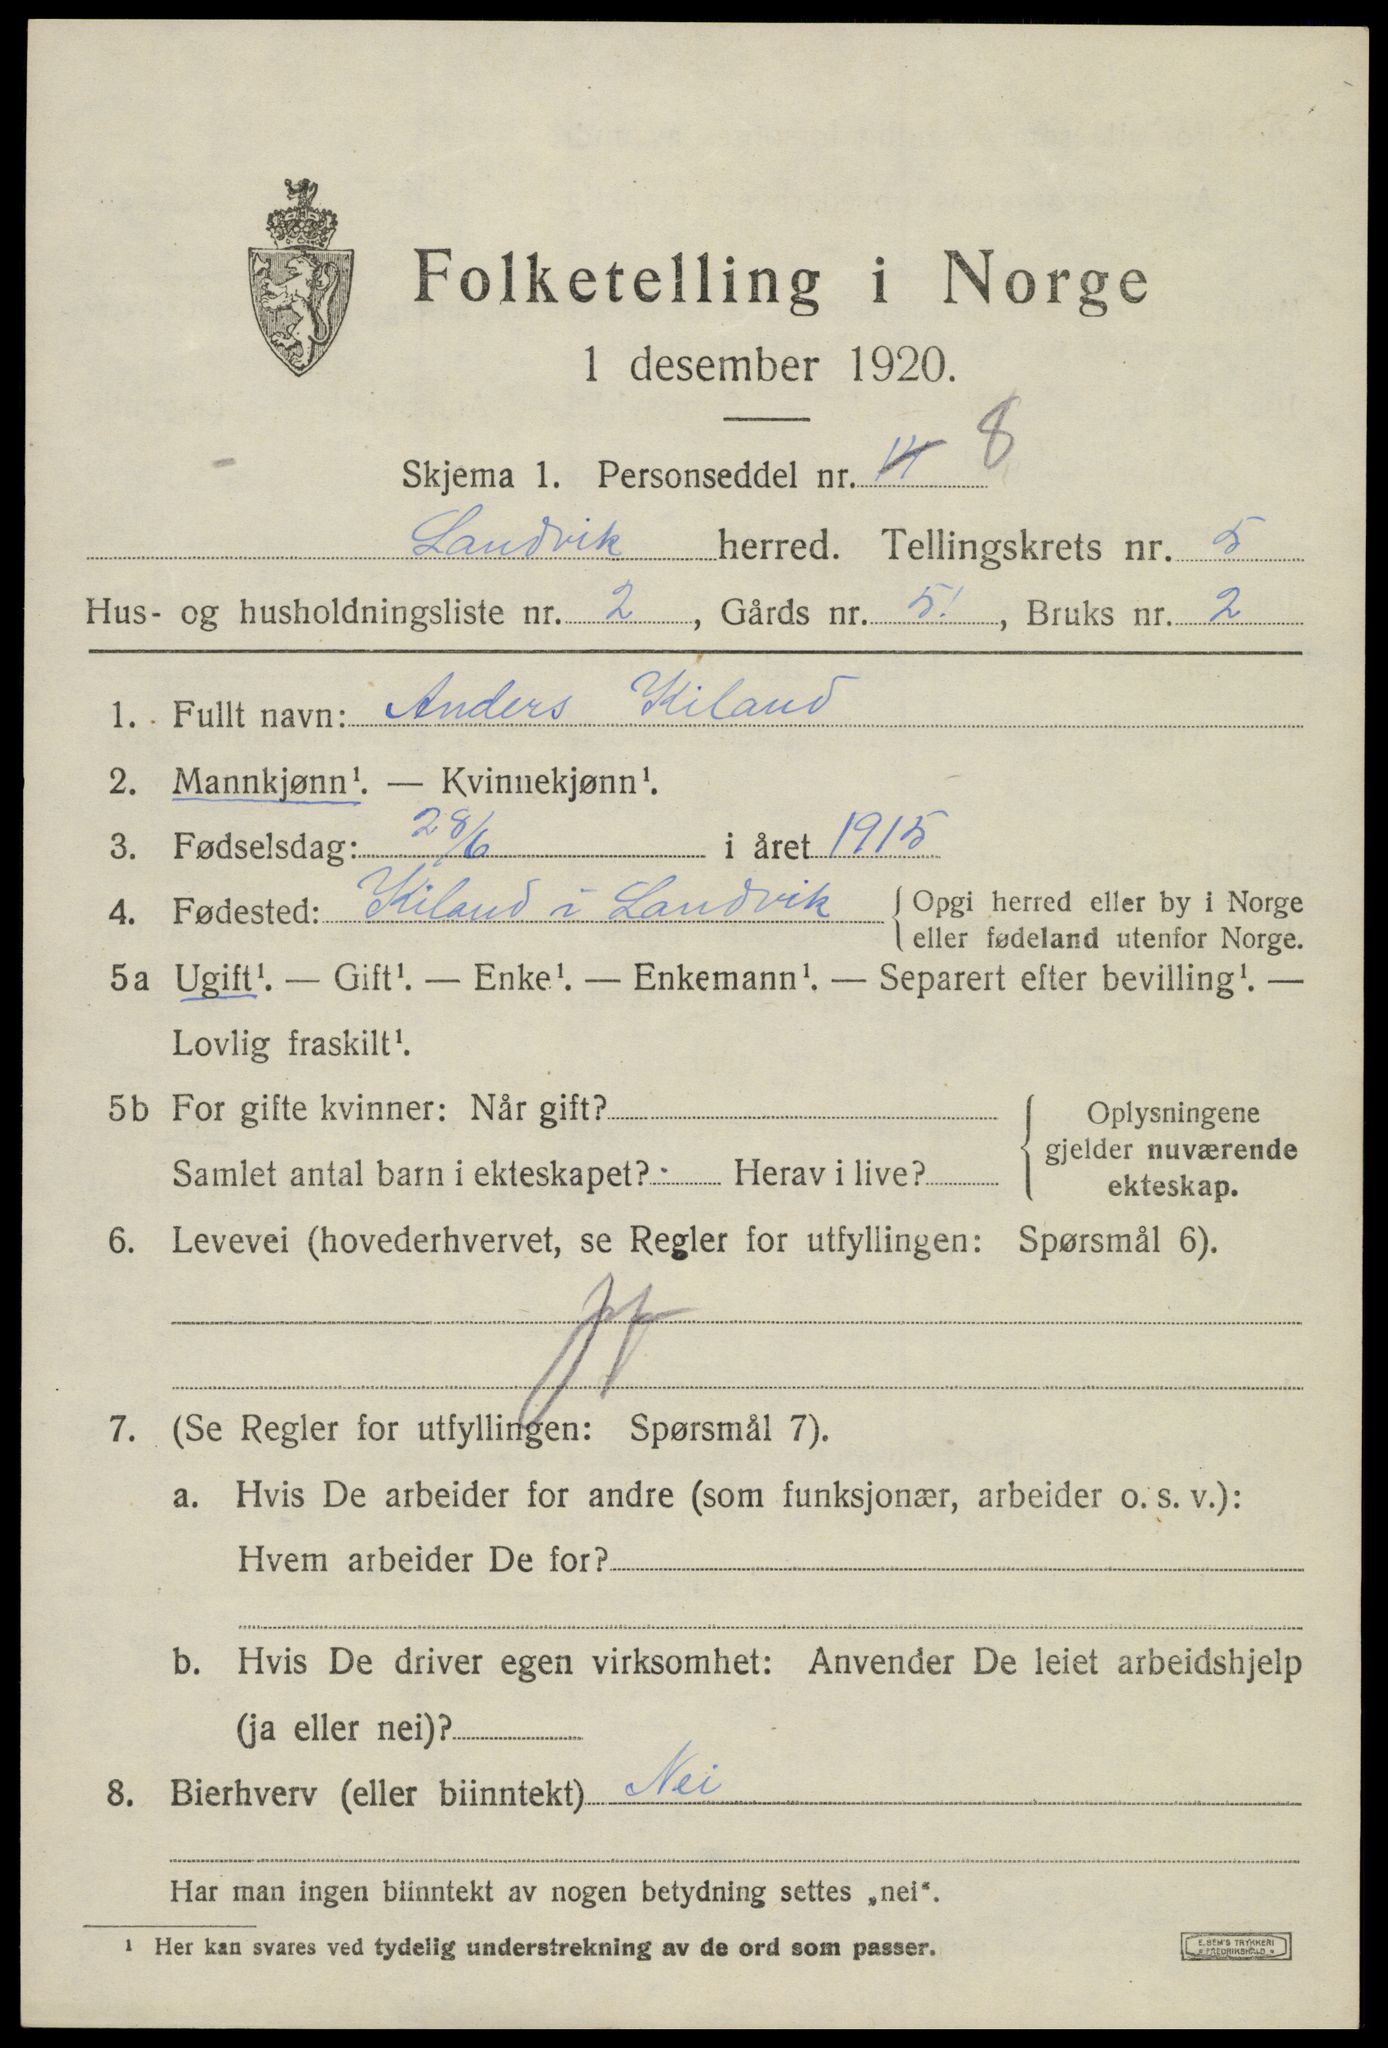 Folketelling i Norge
1 desember 1920.
Skjema 1. Personseddel nr. 8
Landvik herred. Tellingskrets nr. 5
Hus- og husholdningsliste nr. 2, Gårds nr. 51, Bruks nr. 2
1. Fullt navn: Anders Kiland
2. Mannkjønn¹. — Kvinnekjønn¹.
3. Fødselsdag: 28/6 i året 1915
4. Fødested: Kiland i Landvik { Opgi herred eller by i Norge
eller fødeland utenfor Norge.
5a Ugift¹. — Gift¹. — Enke¹. — Enkemann¹. — Separert efter bevilling¹. —
Lovlig fraskilt¹.
5b For gifte kvinner: Når gift?
Samlet antal barn i ekteskapet? Herav i live?
Oplysningene
gjelder nuværende
ekteskap.
6. Levevei (hovederhvervet, se Regler for utfyllingen: Spørsmål 6).
7. (Se Regler for utfyllingen: Spørsmål 7).
a. Hvis De arbeider for andre (som funksjonær, arbeider o. s. v.):
Hvem arbeider De for?
b. Hvis De driver egen virksomhet: Anvender De leiet arbeidshjelp
(ja eller nei)?
8. Bierhverv (eller biinntekt) Nei
Har man ingen biinntekt av nogen betydning settes „nei“.
¹ Her kan svares ved tydelig understrekning av de ord som passer.
E. SEM'S TRYKKERI
FREDRIKSHALD